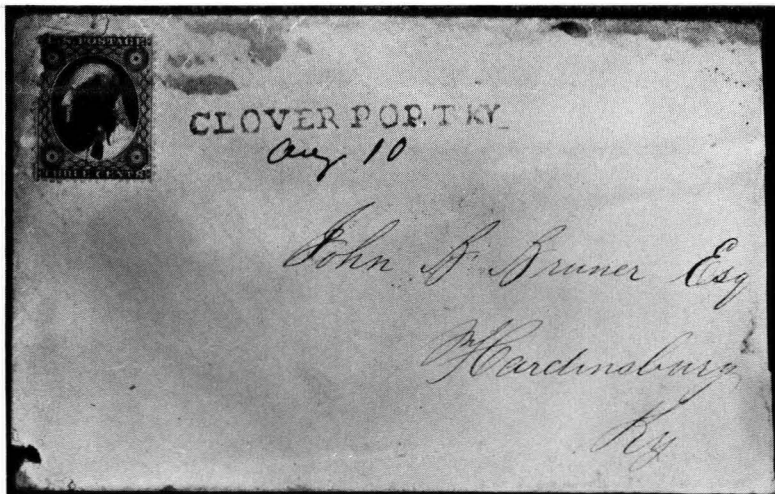 U.S. POSTAGE
THREE CENTS
CLOVERPORT KY
Aug 10
John B Bruner Esq
Hardinsburg
Ky